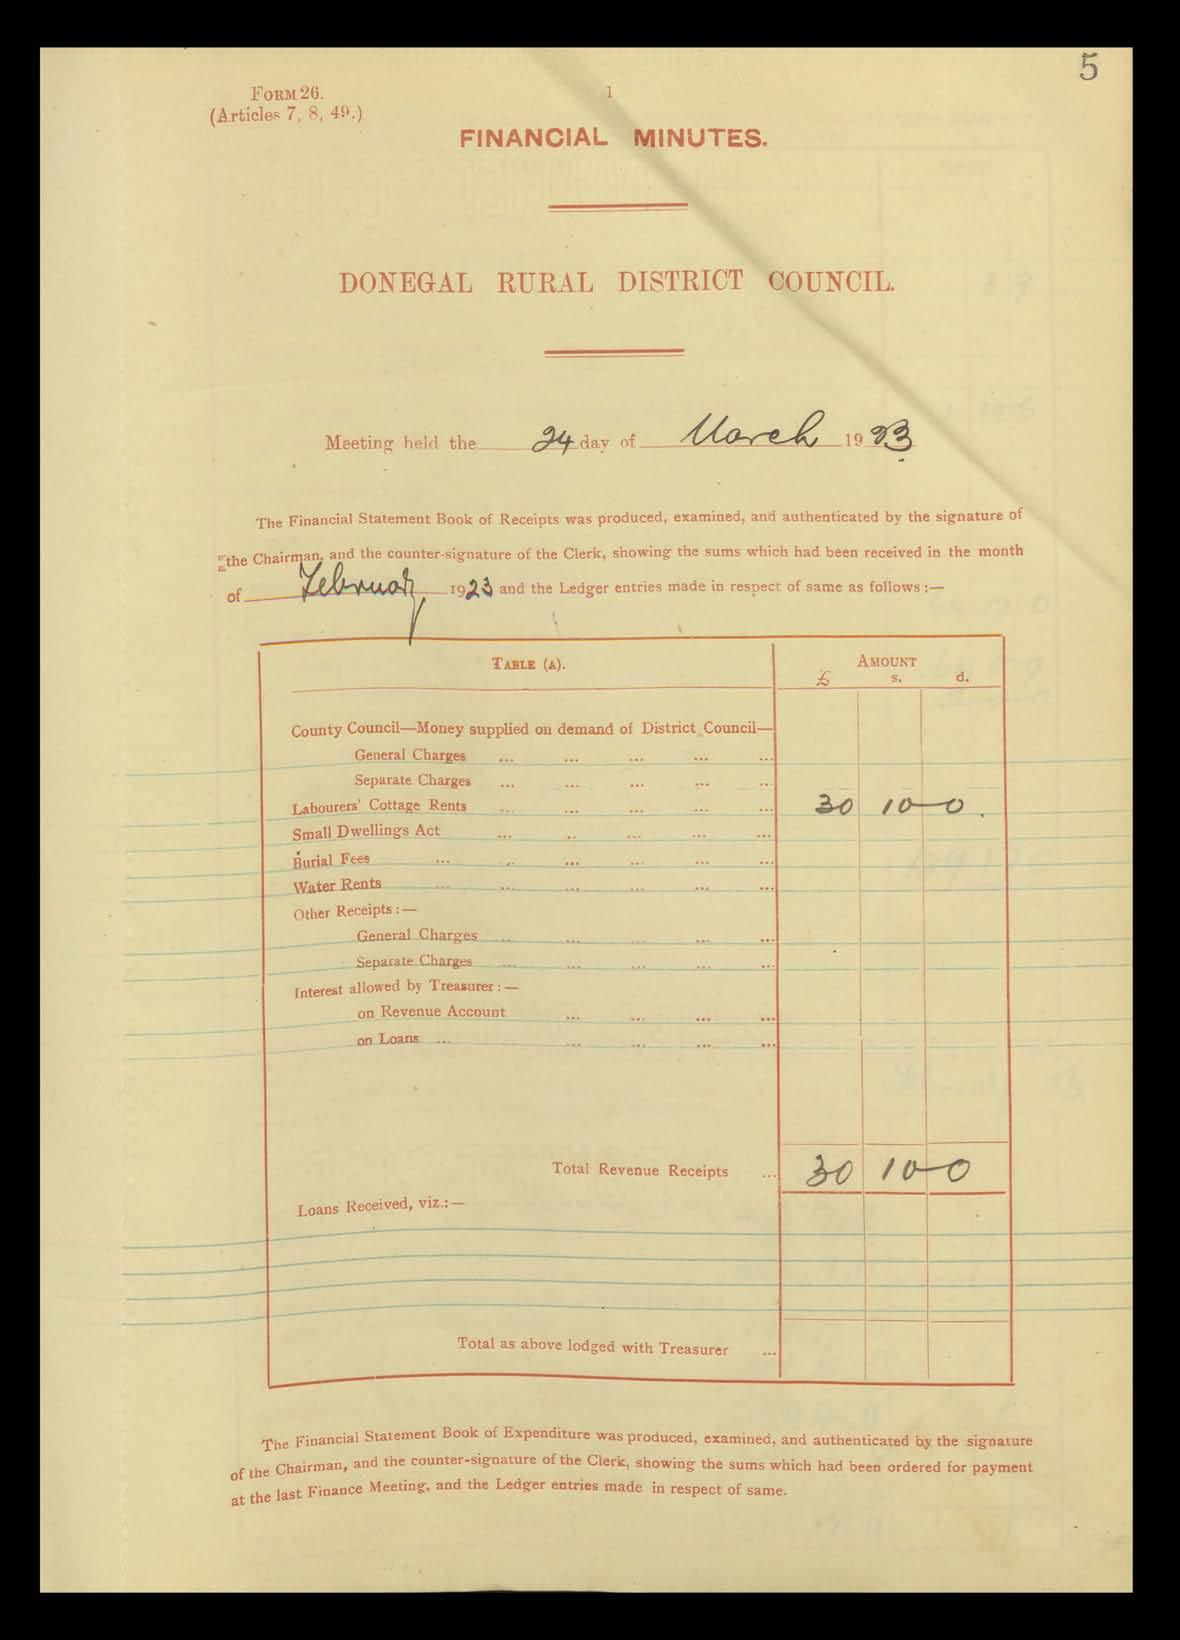 5
FORM 26.
1
(Articles 7, 8, 49.)
FINANCIAL MINUTES.
DONEGAL RURAL DISTRICT COUNCIL.
Meeting held the 24 day of March 1923
The Financial Statement Book of Receipts was produced, examined, and authenticated by the signature of
the Chairman, and the counter-signature of the Clerk, showing the sums which had been received in the month
of February 1923 and the Ledger entries made in respect of same as follows :—
TABLE (A). AMOUNT
£ s. d.
County Council—Money supplied on demand of District Council—
General Charges ... ... ... ... ...
Separate Charges ... ... ... ... ...
Labourers' Cottage Rents ... ... ... ... ... 30 10-0.
Small Dwellings Act ... .. ... ... ...
Burial Fees ... .. ... ... ... ...
Water Rents ... ... ... ... ... ...
Other Receipts :—
General Charges ... ... ... ... ...
Separate Charges ... ... ... ... ...
Interest allowed by Treasurer :—
on Revenue Account ... ... ... ...
on Loans ... ... ... ... ...
Total Revenue Receipts ... 30 10-0
Loans Received, viz.:—
Total as above lodged with Treasurer ...
The Financial Statement Book of Expenditure was produced, examined, and authenticated by the signature
of the Chairman, and the counter-signature of the Clerk, showing the sums which had been ordered for payment
at the last Finance Meeting, and the Ledger entries made in respect of same.